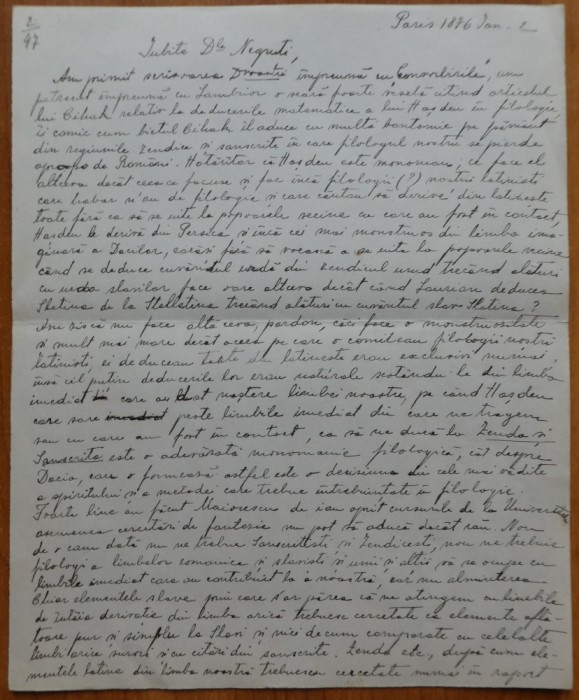 2/97
Paris 1876 Jan. 2
Iubite Dle Negruti,
Am primit scrisoarea Dvoastră împreună cu Convorbirile, am
petrecut împreună cu Lambrior o sară foarte veselă citind articolul
lui Cihak relativ la deducerile matematice a lui Hasdeu în filologie
Îi comic cum bietul Cihak îl aduce cu multă bontomie pe pământ
din regiunile Zendice și sanscrite în care filologul nostru se pierde
apropo de Români. Hotărîtor că Hasdeu este monoman, ce face el
altceva decât ceea ce facuse și fac încă filologii (?) nostrii latiniști
care habar n'au de filologie și care căutau să derive din latinește
toate fără ca să se uite la popoarele vecine cu care au fost în contact,
Hasdeu le derivă din Persica și încă cei mai monstruos din limba ima-
ginară a Dacilor, earăși fără să voească a se uita la popoarele vecine
când se deduce cuvântul undă din zendicul und trecând alături
cu uda slavilor, face oare altceva decât când Laurian deducea
Slatina de la Stellatina trecând alăturia cu cuvântul slav Slatina ?
Am zis că nu face alta ceva, pardon, căci face o monstruositate
și mult mai mare decât aceea pe care o comiteau filologii nostri
latiniști, ei deduceau toate din latinește erau exclusivi numai,
însă cel putin deducerile lor erau naturale scotându-le din limba
imediat care au dat naștere limbei noastre, pe când Hasdeu
care sare imediat peste limbile imediat din care ne tragem
sau cu care am fost în contact, ca să ne ducă la Zenda și
Sanscrita este o adevărată monomanie filologică, cât despre
Dacia, care o formează astfel este o deciziune din cele mai vădite
a spiritului și a metodei care trebue întrebuintate în filologie.
Foarte bine au făcut Maiorescu de i-au oprit cursurile de la Universitate
asemenea cercetări de fantezie nu pot să aducă decât rău. Nou
de o cam dată nu ne trebue Sanscritești și Zendicești, nou ne trebuie
filologi a limbelor romanice și slaviști și unii și altii să se ocupe cu
limbile imediat care au contribuit la a noastră, ear nu almintrerea
Chiar elementele slave prin care s'ar părea că ne atingem cu limbile
de întăia derivatie din limba arică trebuesc cercetate ca elemente află-
toare pur și simplu la Slavi și nici decum comparate cu celelalte
limbi arice surori și cu citări din sanscrite. Zenda etc., după cum ele-
mentele latine din limba noastră trebuesc cercetate numai în raport